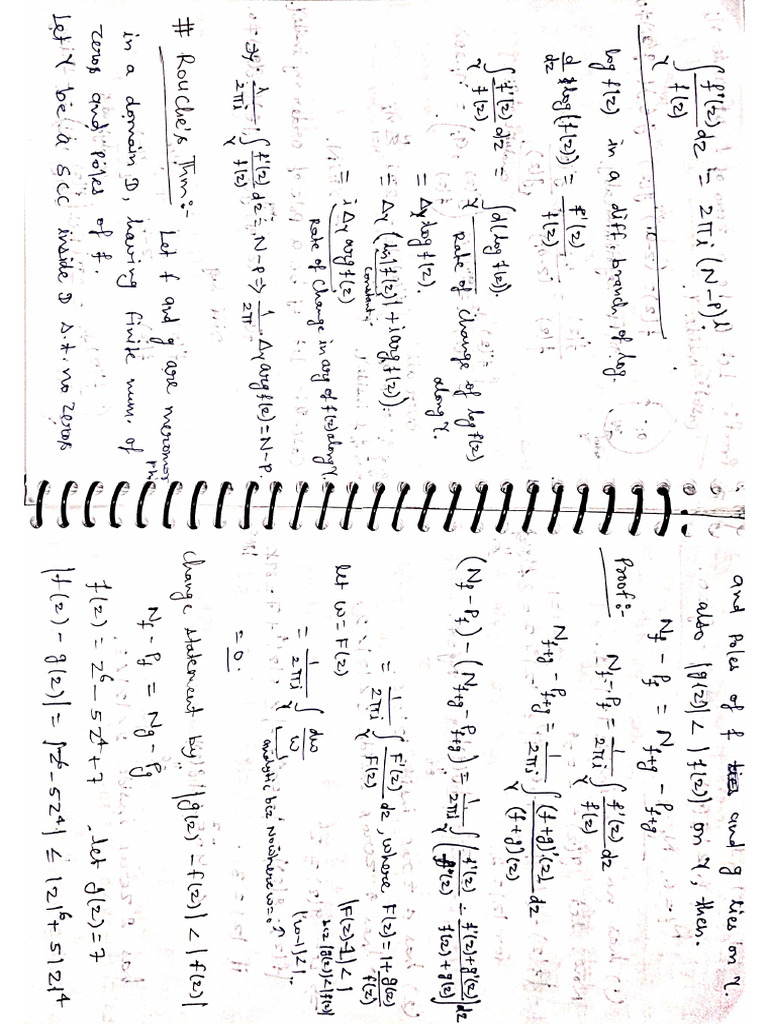 ∫_γ f'(z)/f(z) dz = 2πi (N-P)
log f(z) in a diff. branch of log.
d/dz log(f(z)) = f'(z)/f(z)
∫_γ f'(z)/f(z) dz = ∫_γ d(log f(z)).
Rate of change of log f(z) along γ.
= Δ_γ log f(z).
= Δ_γ (ln|f(z)| + i arg f(z))
constant
= i Δ_γ arg f(z)
Rate of change in arg of f(z) along γ.
1/2πi ∫_γ f'(z)/f(z) dz = N-P ⇒ 1/2π Δ_γ arg f(z) = N-P.
# Rouche's Thm:- Let f and g are meromorphic
in a domain D, having finite num. of
zeros and Poles of f.
Let γ be a scc inside D s.t. no zeros
and Poles of f and g lies on γ.
also |g(z)| < |f(z)| on γ, then.
N_f - P_f = N_{f+g} - P_{f+g}
Proof:- N_f - P_f = 1/2πi ∫_γ f'(z)/f(z) dz
N_{f+g} - P_{f+g} = 1/2πi ∫_γ (f+g)'(z)/(f+g)(z) dz
(N_f - P_f) - (N_{f+g} - P_{f+g}) = 1/2πi ∫_γ (f'(z)/f(z) - f'(z)+g'(z)/f(z)+g(z)) dz
= 1/2πi ∫_γ F'(z)/F(z) dz, where F(z) = 1 + g(z)/f(z)
let w = F(z)
|F(z)-1| < 1
bcz |g(z)| < |f(z)|
= 1/2πi ∫_γ dw/w
|w-1| < 1.
analytic biz Nowhere w=0
= 0.
Change statement by, |g(z) - f(z)| < |f(z)|
N_f - P_f = N_g - P_g
f(z) = z⁶ - 5z⁴ + 7, let g(z) = 7
|f(z) - g(z)| = |z⁶ - 5z⁴| ≤ |z|⁶ + 5|z|⁴